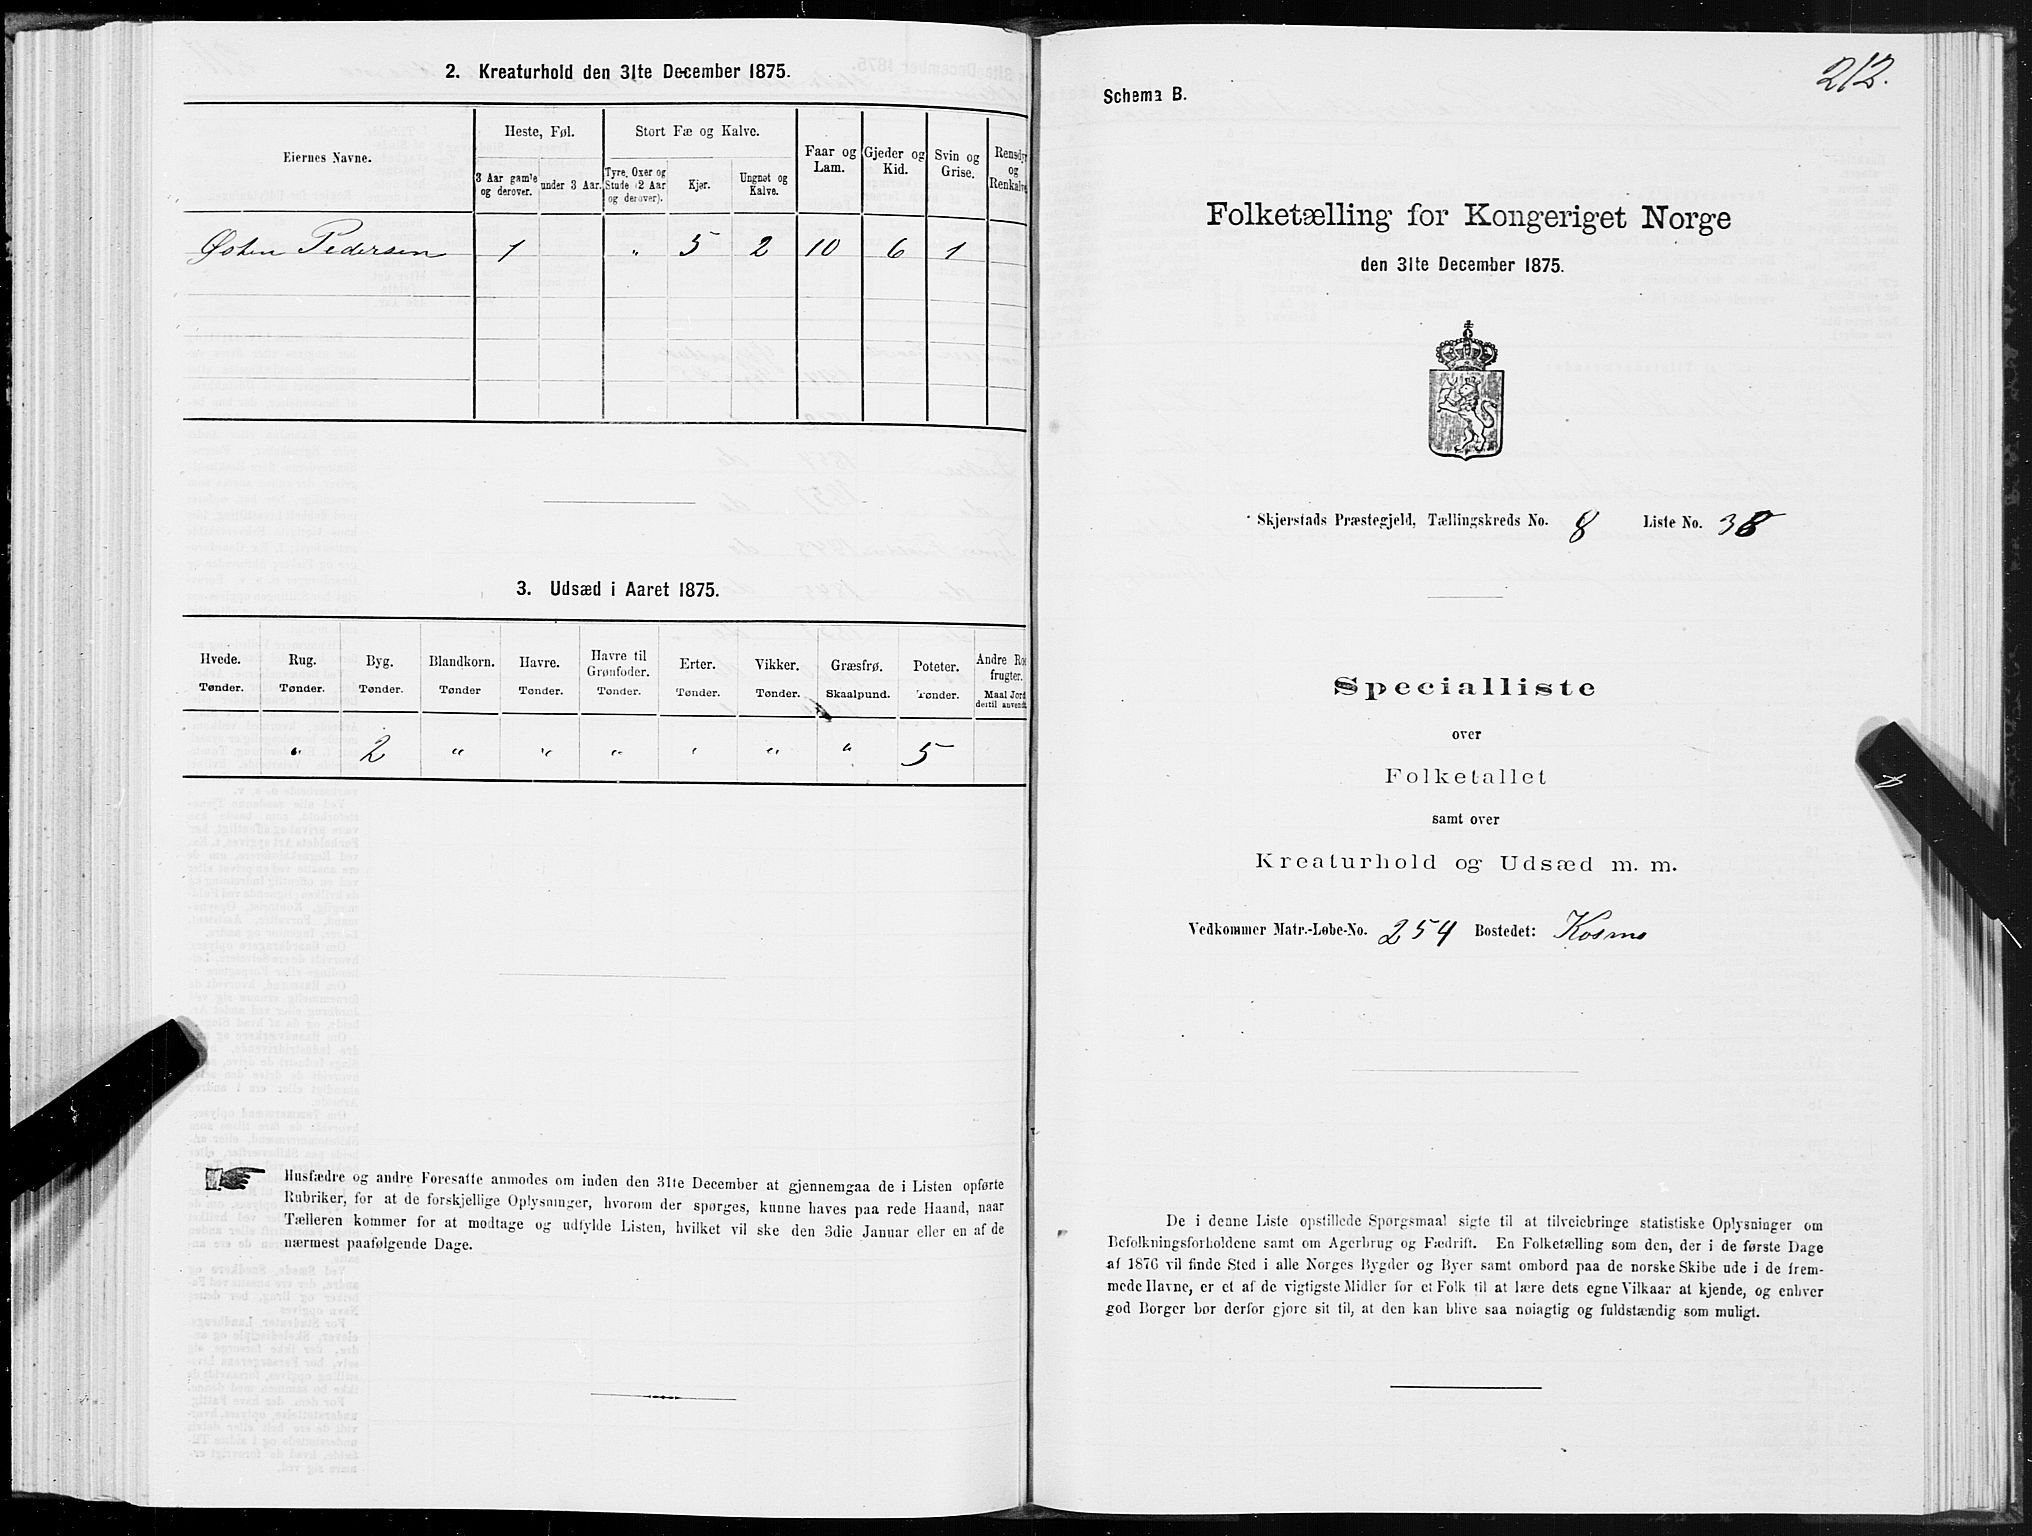 2. Kreaturhold den 31te December 1875.
Eiernes Navne.
Heste, Føl.
Stort Fæ og Kalve.
Faar og Lam.
Gjeder og Kid.
Svin og Grise.
Rensdyr og Renkalve
3 Aar gamle og derover.
under 3 Aar.
Tyre, Oxer og Stude (2 Aar og derover).
Kjør.
Ungnøt og Kalve.
Østen Pedersen 1 " 5 2 10 6 1
3. Udsæd i Aaret 1875.
Hvede. Rug. Byg. Blandkorn. Havre. Havre til Grønfoder. Erter. Vikker. Græsfrø. Poteter. Andre Ro frugter.
Tønder. Tønder. Tønder. Tønder Tønder. Tønder. Tønder. Tønder. Skaalpund. Tønder. Maal Jord dertil anvendt
" 2 " " " " " " 5
Husfædre og andre Foresatte anmodes om inden den 31te December at gjennemgaa de i Listen opførte
Rubriker, for at de forskjellige Oplysninger, hvorom der spørges, kunne haves paa rede Haand, naar
Tælleren kommer for at modtage og udfylde Listen, hvilket vil ske den 3die Januar eller en af de
nærmest paafølgende Dage.
212.
Schema B.
Folketælling for Kongeriget Norge
den 31te December 1875.
Skjerstads Præstegjeld, Tællingskreds No. 8 Liste No. 38
Specialliste
over
Folketallet
samt over
Kreaturhold og Udsæd m. m.
Vedkommer Matr.-Løbe-No. 254 Bostedet: Kosmo
De i denne Liste opstillede Spørgsmaal sigte til at tilveiebringe statistiske Oplysninger om
Befolkningsforholdene samt om Agerbrug og Fædrift. En Folketælling som den, der i de første Dage
af 1876 vil finde Sted i alle Norges Bygder og Byer samt ombord paa de norske Skibe ude i de frem-
mede Havne, er et af de vigtigste Midler for et Folk til at lære dets egne Vilkaar at kjende, og enhver
god Borger bør derfor gjøre sit til, at den kan blive saa nøiagtig og fuldstændig som muligt.